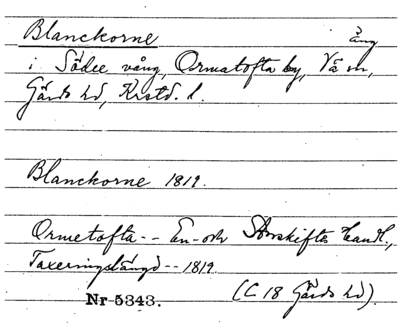 Blanckorne äng
i Södre vång, Ormatofta by, Vä sn,
Gärds hd, Krstd. l.
Blanckorne 1819.
Ormetofta -- En- och Storskiftes Handl.,
Taxeringslängd -- 1819.
Nr 5343. (C 18 Gärds hd).